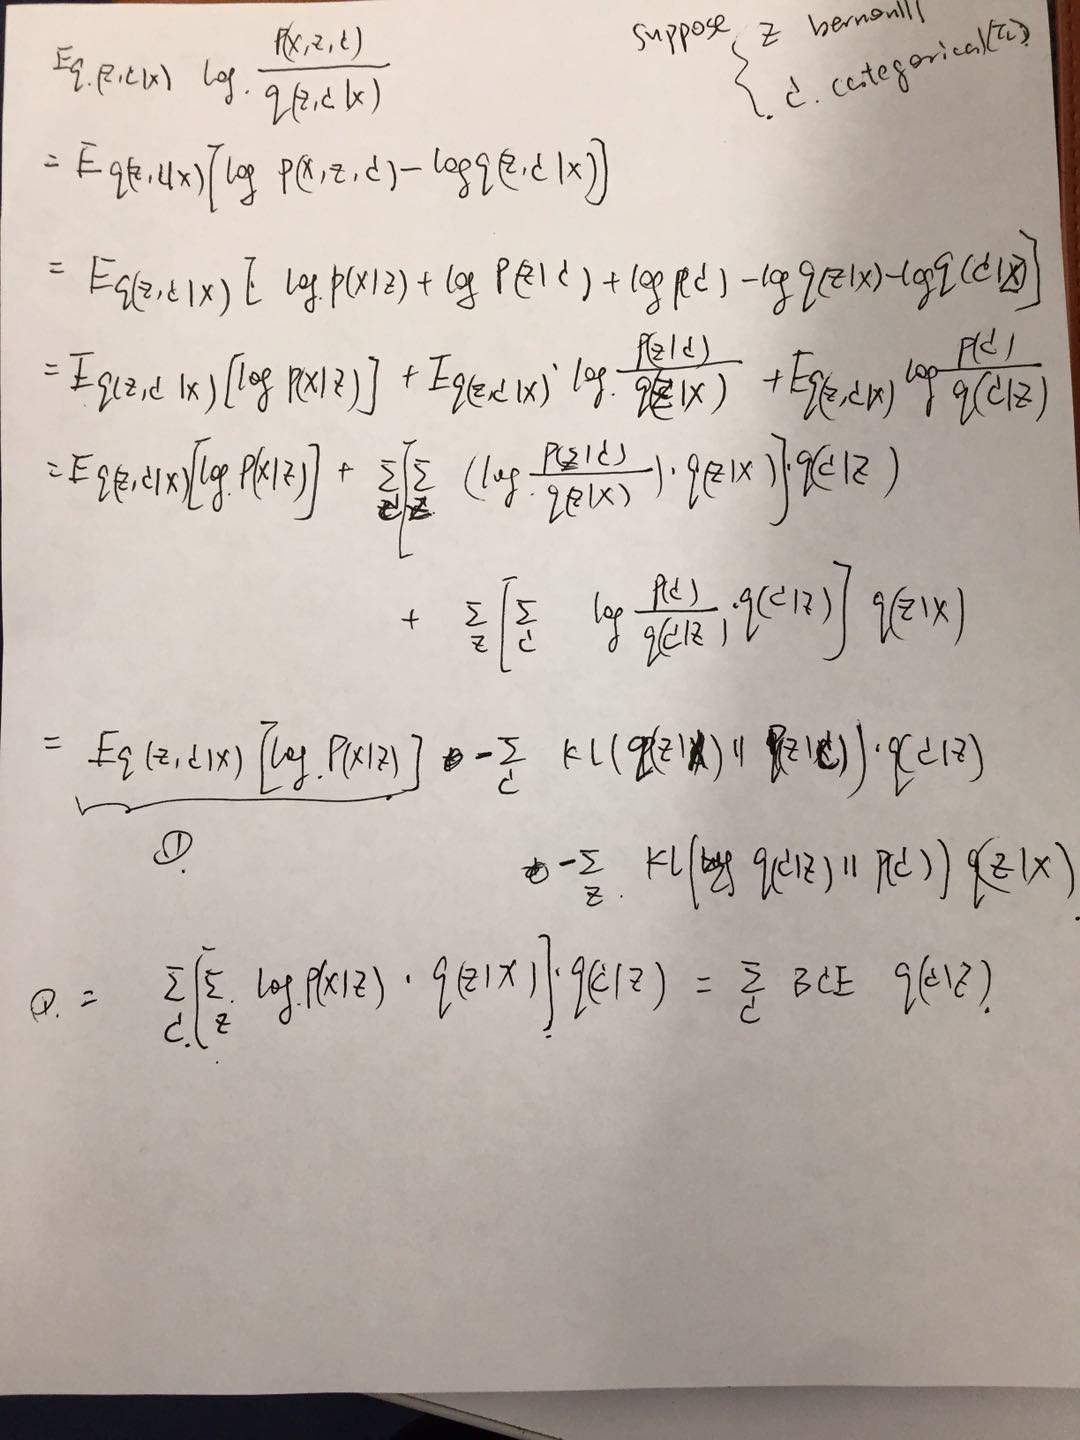 E q(z,c|x) log p(x,z,c) / q(z,c|x)
suppose { z bernoulli
c. categorical(π)
= E q(z,c|x) [log p(x,z,c) - log q(z,c|x)]
= E q(z,c|x) [log p(x|z) + log p(z|c) + log p(c) - log q(z|x) - log q(c|z)]
= E q(z,c|x) [log p(x|z)] + E q(z,c|x) log p(z|c) / q(z|x) + E q(z,c|x) log p(c) / q(c|z)
= E q(z,c|x) [log p(x|z)] + Σ_c [Σ_z (log p(z|c) / q(z|x)) · q(z|x)] · q(c|z)
+ Σ_z [Σ_c log p(c) / q(c|z) · q(c|z)] q(z|x)
= E q(z,c|x) [log p(x|z)] - Σ_c KL(q(z|x) || p(z|c)) · q(c|z)
①
- Σ_z KL(q(c|z) || p(c)) q(z|x).
①. = Σ_c [Σ_z log p(x|z) · q(z|x)] · q(c|z) = Σ_c BCE q(c|z).